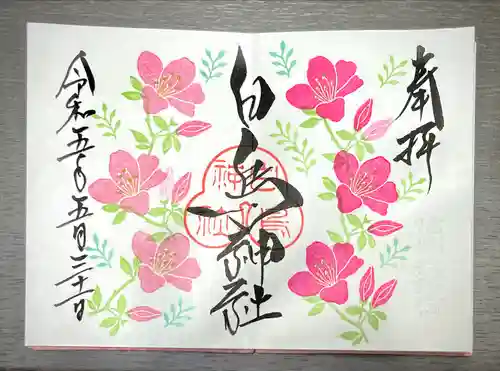 奉拝
白鳥神社
令和五年五月二十一日